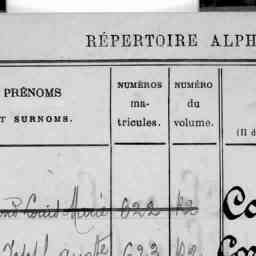 RÉPERTOIRE ALPH
PRÉNOMS
T SURNOMS.
NUMÉROS
ma-
tricules.
NUMÉRO
du
volume.
(Il d
Louis Marie 622 R2 Co
623 R2